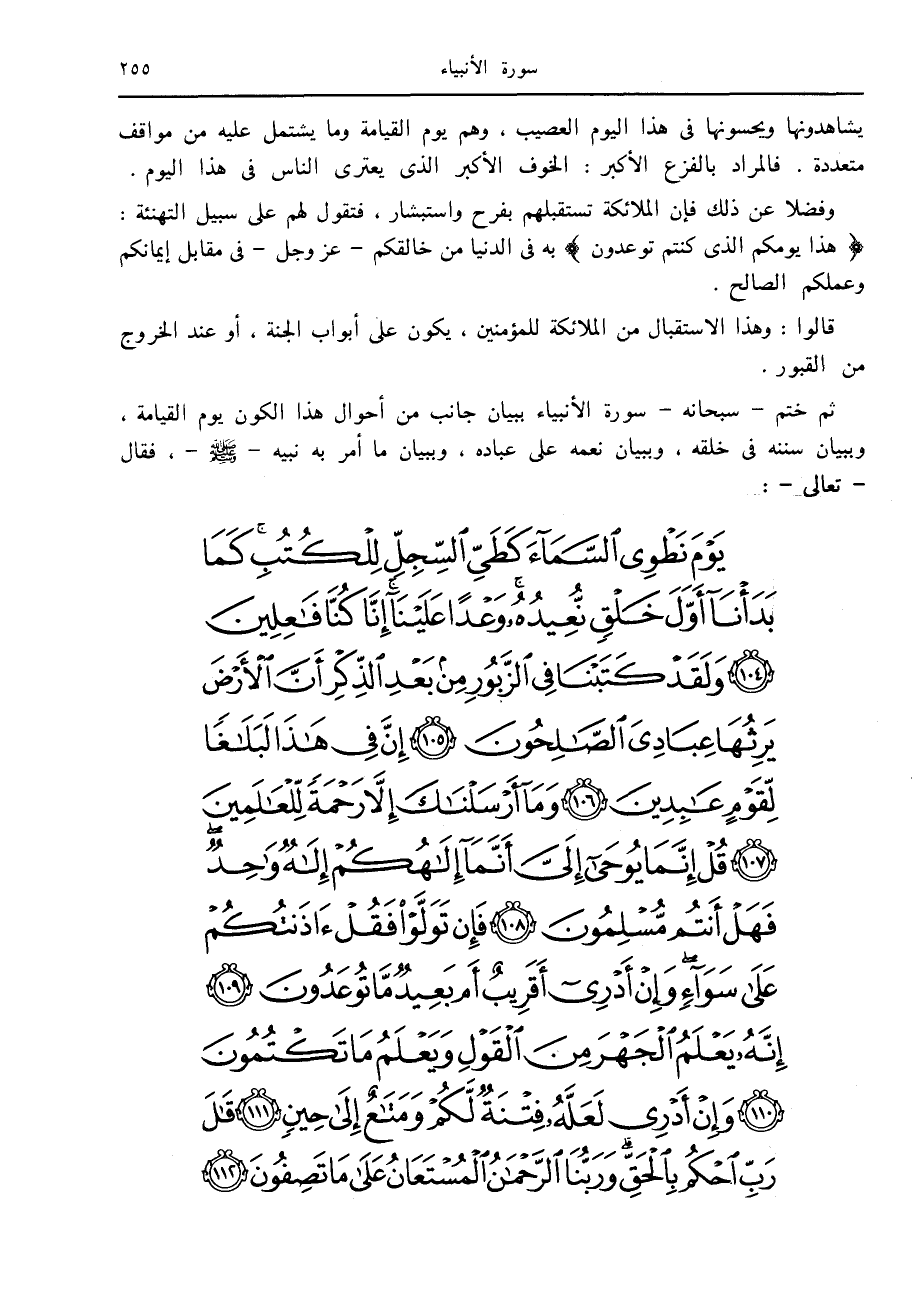 سورة الأنبياء ٢٥٥
يشاهدونها ويحسونها فى هذا اليوم العصيب ، وهم يوم القيامة وما يشتمل عليه من مواقف
متعددة . فالمراد بالفزع الأكبر : الخوف الأكبر الذى يعترى الناس فى هذا اليوم .
وفضلا عن ذلك فإن الملائكة تستقبلهم بفرح واستبشار ، فتقول لهم على سبيل التهنئة :
﴿ هذا يومكم الذى كنتم توعدون ﴾ به فى الدنيا من خالقكم – عز وجل – فى مقابل إيمانكم
وعملكم الصالح .
قالوا : وهذا الاستقبال من الملائكة للمؤمنين ، يكون على أبواب الجنة ، أو عند الخروج
من القبور .
ثم ختم – سبحانه – سورة الأنبياء ببيان جانب من أحوال هذا الكون يوم القيامة ،
وببيان سننه فى خلقه ، وببيان نعمه على عباده ، وببيان ما أمر به نبيه – ﷺ – ، فقال
– تعالى – :
يَوْمَ نَطْوِى ٱلسَّمَآءَ كَطَىِّ ٱلسِّجِلِّ لِلْكُتُبِ ۚ كَمَا
بَدَأْنَآ أَوَّلَ خَلْقٍ نُّعِيدُهُۥ ۚ وَعْدًا عَلَيْنَآ ۚ إِنَّا كُنَّا فَٰعِلِينَ
﴿١٠٤﴾ وَلَقَدْ كَتَبْنَا فِى ٱلزَّبُورِ مِنۢ بَعْدِ ٱلذِّكْرِ أَنَّ ٱلْأَرْضَ
يَرِثُهَا عِبَادِىَ ٱلصَّٰلِحُونَ ﴿١٠٥﴾ إِنَّ فِى هَٰذَا لَبَلَٰغًا
لِّقَوْمٍ عَٰبِدِينَ ﴿١٠٦﴾ وَمَآ أَرْسَلْنَٰكَ إِلَّا رَحْمَةً لِّلْعَٰلَمِينَ
﴿١٠٧﴾ قُلْ إِنَّمَا يُوحَىٰٓ إِلَىَّ أَنَّمَآ إِلَٰهُكُمْ إِلَٰهٌ وَٰحِدٌ ۖ
فَهَلْ أَنتُم مُّسْلِمُونَ ﴿١٠٨﴾ فَإِن تَوَلَّوْا۟ فَقُلْ ءَاذَنتُكُمْ
عَلَىٰ سَوَآءٍ ۖ وَإِنْ أَدْرِىٓ أَقَرِيبٌ أَم بَعِيدٌ مَّا تُوعَدُونَ ﴿١٠٩﴾
إِنَّهُۥ يَعْلَمُ ٱلْجَهْرَ مِنَ ٱلْقَوْلِ وَيَعْلَمُ مَا تَكْتُمُونَ
﴿١١٠﴾ وَإِنْ أَدْرِى لَعَلَّهُۥ فِتْنَةٌ لَّكُمْ وَمَتَٰعٌ إِلَىٰ حِينٍ ﴿١١١﴾ قَٰلَ
رَبِّ ٱحْكُم بِٱلْحَقِّ ۗ وَرَبُّنَا ٱلرَّحْمَٰنُ ٱلْمُسْتَعَانُ عَلَىٰ مَا تَصِفُونَ ﴿١١٢﴾